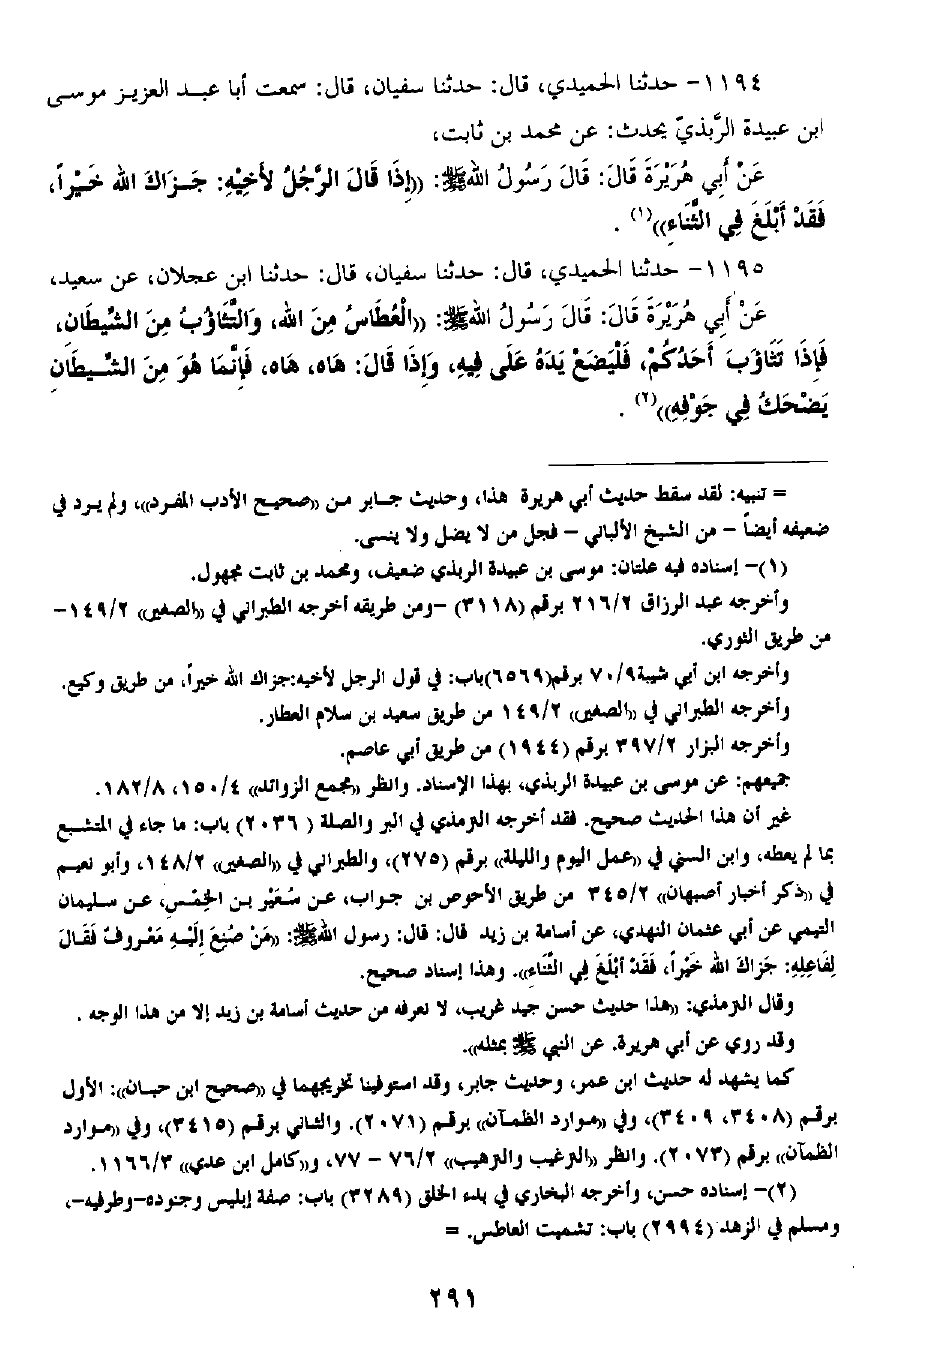 ١١٩٤- حدثنا الحميدي، قال: حدثنا سفيان، قال: سمعت أبا عبد العزيز موسى
ابن عبيدة الرَّبذيّ يحدث: عن محمد بن ثابت،
عَنْ أَبِي هُرَيْرَةَ قَالَ: قَالَ رَسُولُ اللهِ ﷺ: ((إِذَا قَالَ الرَّجُلُ لأَخِيْهِ: جَزَاكَ الله خَيْراً،
فَقَدْ أَبْلَغَ فِي الثَّنَاءِ))(١) .
١١٩٥- حدثنا الحميدي، قال: حدثنا سفيان، قال: حدثنا ابن عجلان، عن سعيد،
عَنْ أَبِي هُرَيْرَةَ قَالَ: قَالَ رَسُولُ اللهِ ﷺ: ((الْعُطَاسُ مِنَ الله، وَالتَّثَاؤُبُ مِنَ الشَّيْطَانِ،
فَإِذَا تَثَاوَبَ أَحَدُكُمْ، فَلْيَضَعْ يَدَهُ عَلَى فِيهِ، وَإِذَا قَالَ: هَاه، هَاه، فَإِنَّمَا هُوَ مِنَ الشَّيطَانِ
يَضْحَكُ فِي جَوْفِهِ))(٢) .
= تنبيه: لقد سقط حديث أبي هريرة هذا، وحديث جابر من ((صحيح الأدب المفرد))، ولم يرد في
ضعيفه أيضاً - من الشيخ الألباني - فجل من لا يضل ولا ينسى.
(١)- إسناده فيه علتان: موسى بن عبيدة الربذي ضعيف، ومحمد بن ثابت مجهول.
وأخرجه عبد الرزاق ٢١٦/٢ برقم (٣١١٨) -ومن طريقه أخرجه الطبراني في ((الصغير)) ١٤٩/٢-
من طريق الثوري.
وأخرجه ابن أبي شيبة٧٠/٩ برقم(٦٥٦٩)باب: في قول الرجل لأخيه:جزاك الله خيراً، من طريق وكيع.
وأخرجه الطبراني في ((الصغير)) ١٤٩/٢ من طريق سعيد بن سلام العطار.
وأخرجه البزار ٣٩٧/٢ برقم (١٩٤٤) من طريق أبي عاصم.
جميعهم: عن موسى بن عبيدة الربذي، بهذا الإسناد. وانظر ((مجمع الزوائد)) ١٥٠/٤، ١٨٢/٨.
غير أن هذا الحديث صحيح. فقد أخرجه الترمذي في البر والصلة ( ٢٠٣٦) باب: ما جاء في المتشبع
بما لم يعطه، وابن السني في ((عمل اليوم والليلة)) برقم (٢٧٥)، والطبراني في ((الصغير)) ١٤٨/٢، وأبو نعيم
في ((ذكر أخبار أصبهان)) ٣٤٥/٢ من طريق الأحوص بن جواب، عن سُعَيْرِ بن الخِمْسِ، عن سليمان
التيمي عن أبي عثمان النهدي، عن أسامة بن زيد قال: قال: رسول الله ﷺ: ((مَنْ صُنِعَ إِلَيْهِ مَعْروفٌ فَقَالَ
لِفَاعِلِهِ: جَزَاكَ الله خَيْراً، فَقَدْ أبْلَغَ فِي الثَّنَاءِ)). وهذا إسناد صحيح.
وقال الترمذي: ((هذا حديث حسن جيد غريب، لا نعرفه من حديث أسامة بن زيد إلا من هذا الوجه .
وقد روي عن أبي هريرة. عن النبي ﷺ بمثله)).
كما يشهد له حديث ابن عمر، وحديث جابر، وقد استوفينا تخريجهما في ((صحيح ابن حبان)): الأول
برقم (٣٤٠٨، ٣٤٠٩)، وفي ((موارد الظمآن)) برقم (٢٠٧١). والثاني برقم (٣٤١٥)، وفي ((موارد
الظمآن)) برقم (٢٠٧٣). وانظر ((الترغيب والترهيب)) ٧٦/٢ - ٧٧، و((كامل ابن عدي)) ١١٦٦/٣.
(٢)- إسناده حسن، وأخرجه البخاري في بدء الخلق (٣٢٨٩) باب: صفة إبليس وجنوده-وطرفيه-،
ومسلم في الزهد (٢٩٩٤) باب: تشميت العاطس. =
٢٩١